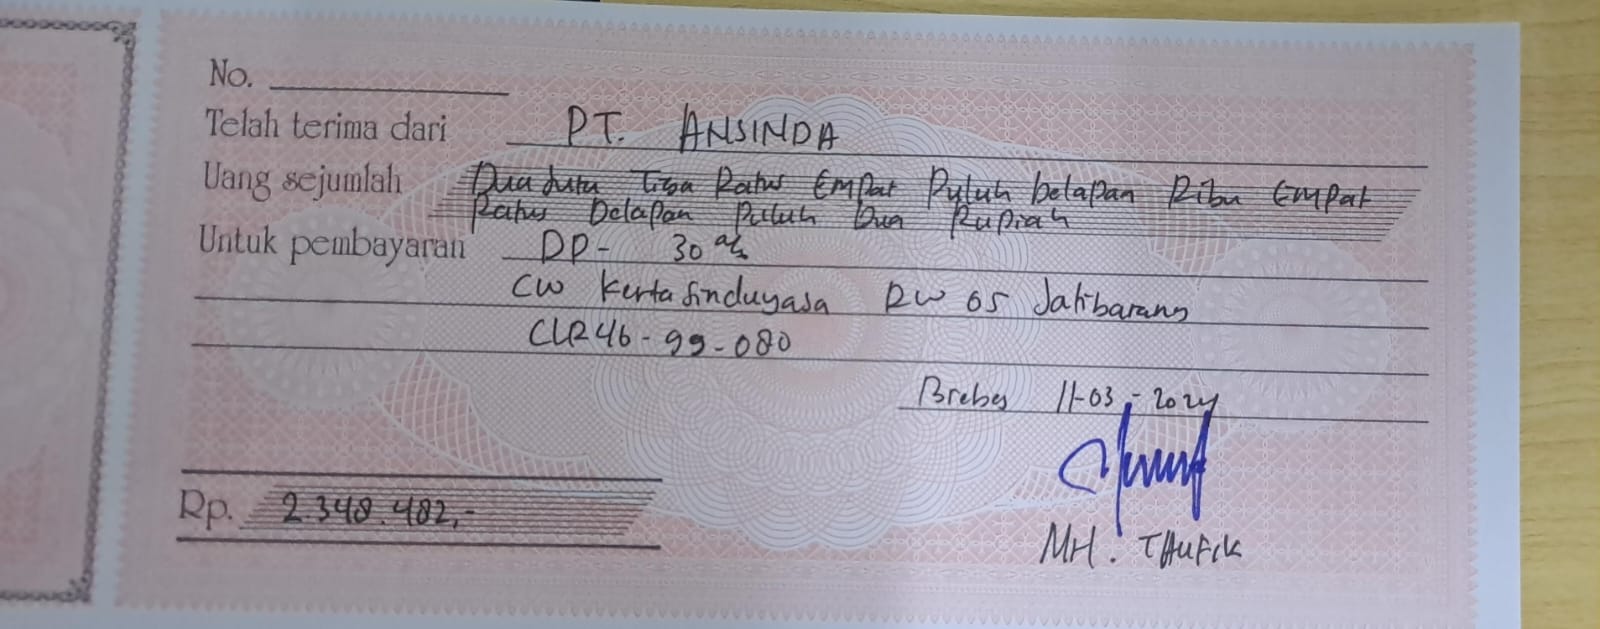 No.
Telah terima dari PT. ANSINDA
Uang sejumlah Dua Juta Tiga Ratus Empat Puluh Delapan Ribu Empat
Ratus Delapan Puluh Dua Rupiah
Untuk pembayaran DP- 30 %
CW Kertasinduyasa RW 05 Jatibarang
CLR46-99-080
Brebes 11-03-2024
Rp. 2.348.482,-
MH. TAUFIK